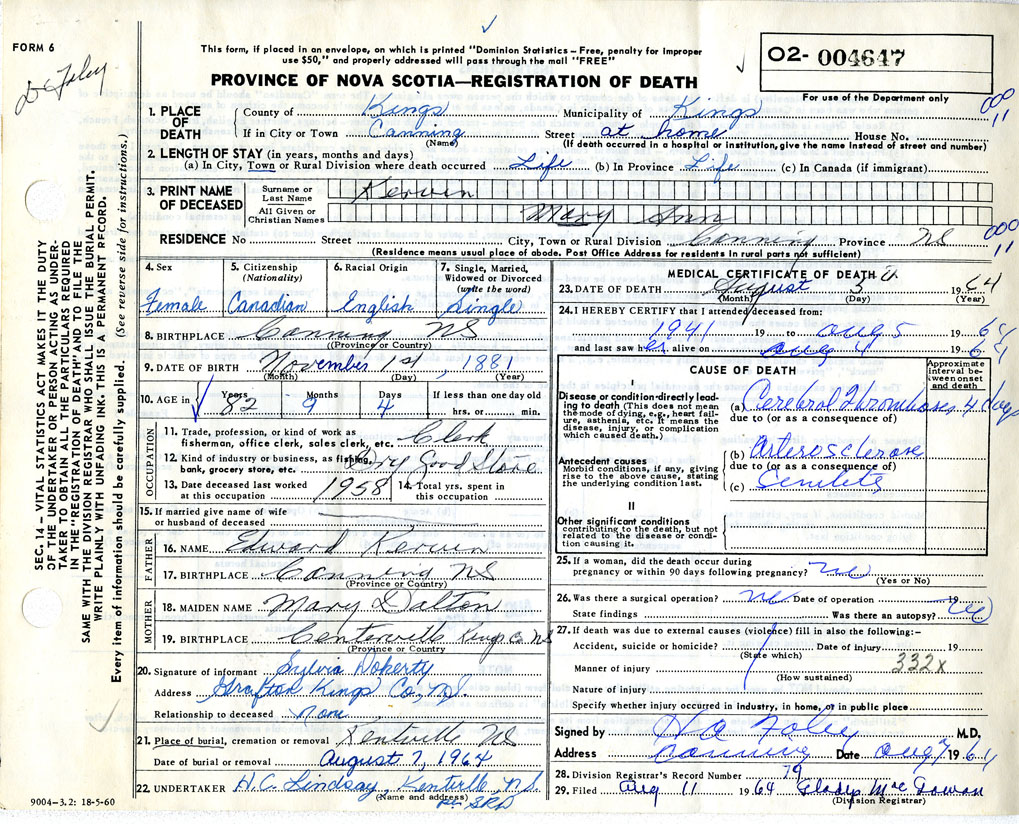 FORM 6
Dr Foley
This form, if placed in an envelope, on which is printed "Dominion Statistics–Free, penalty for improper
use $50," and properly addressed will pass through the mail "FREE"
PROVINCE OF NOVA SCOTIA—REGISTRATION OF DEATH
O2- 004647
For use of the Department only
000
11
1. PLACE OF DEATH County of Kings Municipality of Kings
If in City or Town Canning Street at home House No.
(Name) (If death occurred in a hospital or institution, give the name instead of street and number)
2. LENGTH OF STAY (in years, months and days)
(a) In City, Town or Rural Division where death occurred Life (b) In Province Life (c) In Canada (if immigrant)
3. PRINT NAME OF DECEASED Surname or Last Name Kerwin
All Given or Christian Names Mary Ann
RESIDENCE No Street City, Town or Rural Division Canning Province NS
000
11
(Residence means usual place of abode. Post Office Address for residents in rural parts not sufficient)
4. Sex 5. Citizenship (Nationality) 6. Racial Origin 7. Single, Married, Widowed or Divorced (write the word)
Female Canadian English Single
8. BIRTHPLACE Canning NS
(Province or Country)
9. DATE OF BIRTH November 1st, 1881
(Month) (Day) (Year)
10. AGE in Years Months Days If less than one day old
82 9 4 hrs. or min.
OCCUPATION
11. Trade, profession, or kind of work as
fisherman, office clerk, sales clerk, etc. Clerk
12. Kind of industry or business, as fishing,
bank, grocery store, etc. Dry Good Store
13. Date deceased last worked at this occupation 1958 14. Total yrs. spent in this occupation
15. If married give name of wife
or husband of deceased
FATHER
16. NAME Edward Kerwin
17. BIRTHPLACE Canning NS
(Province or Country)
MOTHER
18. MAIDEN NAME Mary Dalton
19. BIRTHPLACE Centerville Kings Co NS
(Province or Country
20. Signature of informant Sylvia Doherty
Address Grafton Kings Co, N.S.
Relationship to deceased none
21. Place of burial, cremation or removal Kentville NS
Date of burial or removal August 7, 1964
22. UNDERTAKER H.C. Lindsay, Kentville, N.S.
(Name and address) per SRD
9004–3.2: 18-5-60
MEDICAL CERTIFICATE OF DEATH
23. DATE OF DEATH August 5 1964
(Month) (Day) (Year)
24. I HEREBY CERTIFY that I attended deceased from:
1941 19 to Aug 5 1964
and last saw her alive on Aug 4 1964
CAUSE OF DEATH
Approximate interval between onset and death
I
Disease or condition directly leading
to death (This does not mean
the mode of dying, e.g., heart failure,
asthenia, etc. It means the
disease, injury, or complication
which caused death.)
(a) Cerebral Thrombosis 4 days
due to (or as a consequence of)
Antecedent causes
Morbid conditions, if any, giving
rise to the above cause, stating
the underlying condition last.
(b) Arterosclerose
due to (or as a consequence of)
(c) Senility
II
Other significant conditions
contributing to the death, but not
related to the disease or condition
causing it.
25. If a woman, did the death occur during
pregnancy or within 90 days following pregnancy? no
(Yes or No)
26. Was there a surgical operation? no Date of operation 19
State findings Was there an autopsy? no
27. If death was due to external causes (violence) fill in also the following:–
Accident, suicide or homicide? Date of injury 19
(State which) 332x
Manner of injury
(How sustained)
Nature of injury
Specify whether injury occurred in industry, in home, or in public place
Signed by H A Foley M.D.
Address Canning Date Aug 7 1964
28. Division Registrar's Record Number 79
29. Filed Aug 11 1964 Gladys MacGowan
(Division Registrar)
SEC. 14 – VITAL STATISTICS ACT MAKES IT THE DUTY
OF THE UNDERTAKER OR PERSON ACTING AS UNDERTAKER
TO OBTAIN ALL THE PARTICULARS REQUIRED
IN THE "REGISTRATION OF DEATH" AND TO FILE THE
SAME WITH THE DIVISION REGISTRAR WHO SHALL ISSUE THE BURIAL PERMIT.
WRITE PLAINLY WITH UNFADING INK. THIS IS A PERMANENT RECORD.
Every item of information should be carefully supplied. (See reverse side for instructions.)